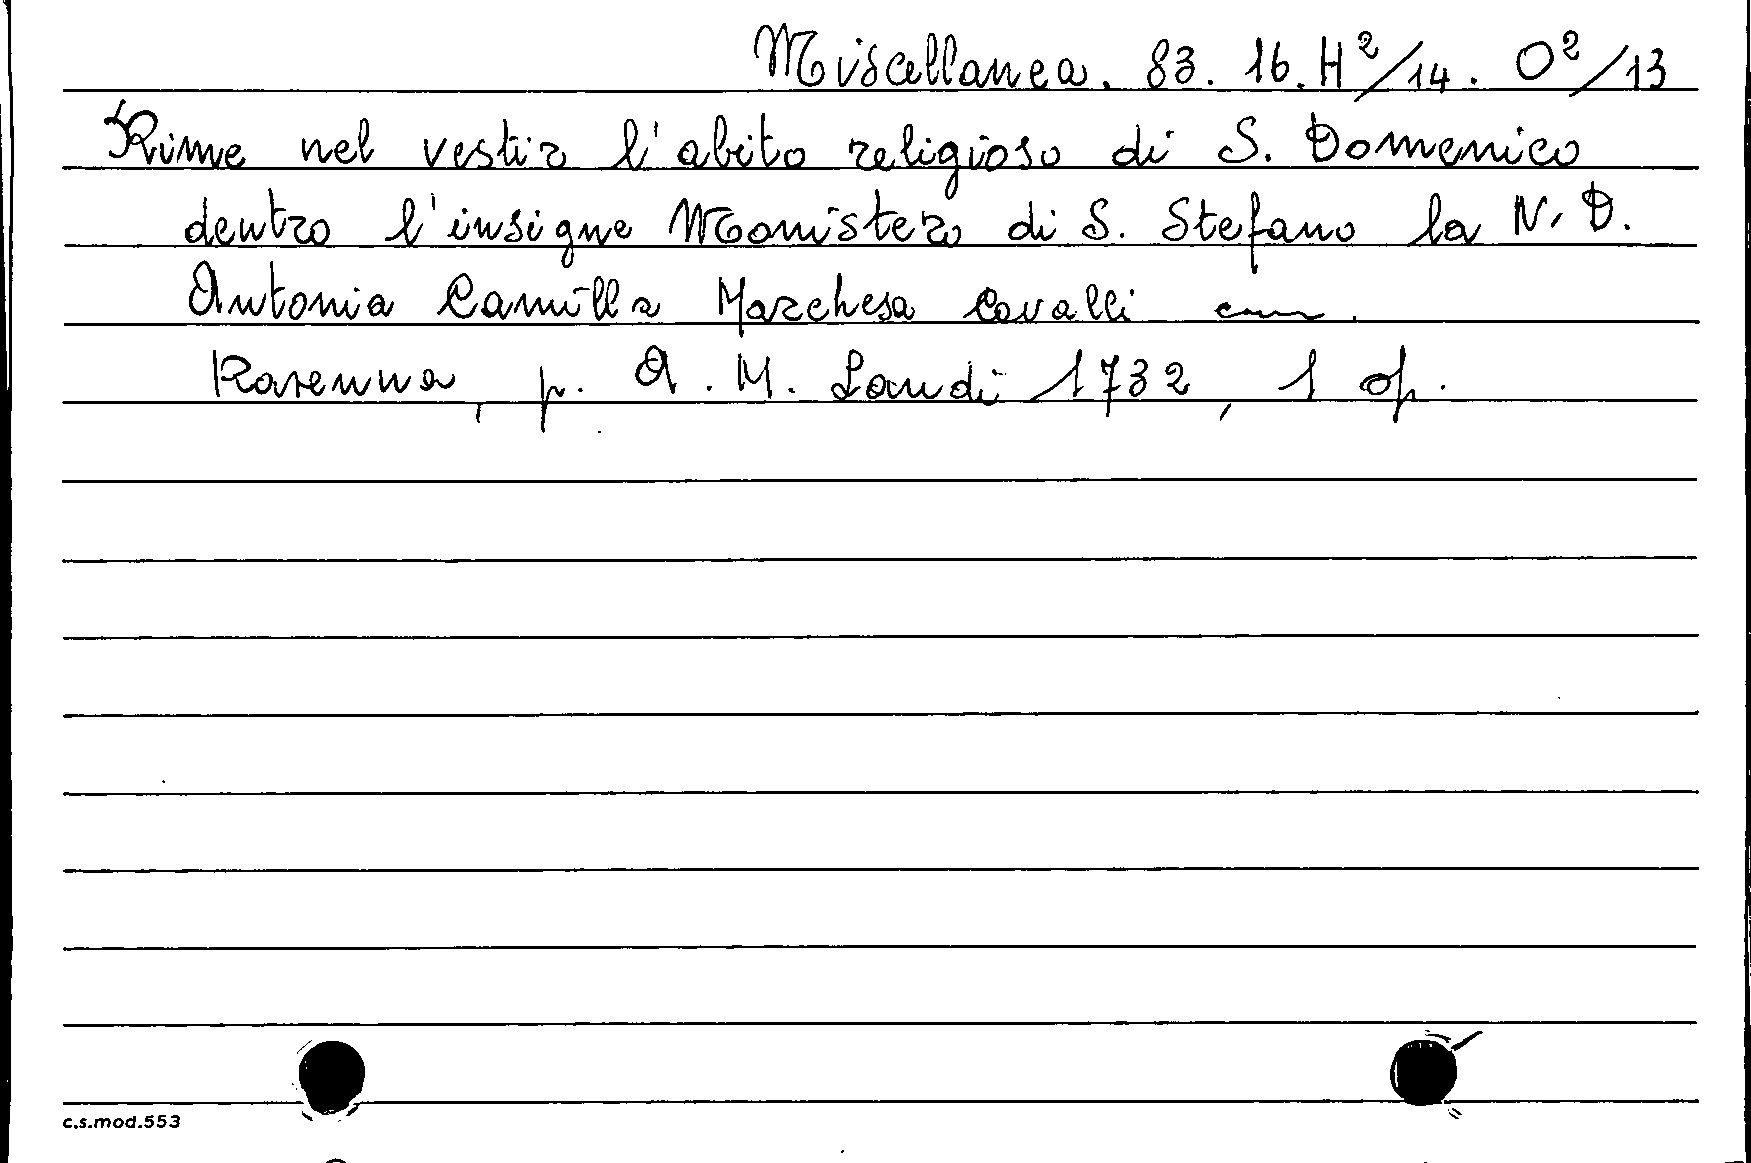 Miscellanea. 83. 16. H²/14. O²/13
Rime nel vestir l'abito religioso di S. Domenico
dentro l'insigne Monistero di S. Stefano la N. D.
Antonia Camilla Marchesa Cavalli
Ravenna, p. A. M. Landi 1732, 1 op.
c.s.mod.553